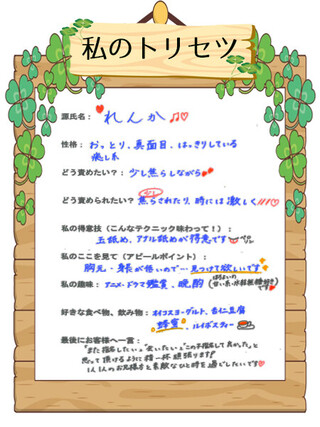 私のトリセツ
源氏名： れんか
性格： おっとり、真面目、はっきりしている
癒し系
どう責めたい？： 少し焦らしながら
少し
どう責められたい？ 焦らされたり、時には激しく!!!
私の得意技（こんなテクニック味わって！）：
玉舐め、アナル舐めが得意です
私のここを見て（アピールポイント）：
胸元・身長が低いので… 見つけて欲しいです
私の趣味： アニメ・ドラマ鑑賞、晩酌
好きな食べ物、飲み物： オイコスヨーグルト、杏仁豆腐
蜂蜜、ルイボスティー
最後にお客様へ一言：
"また指名したい。""会いたい。""この子指名して良かった"と
思って頂けるように精一杯頑張ります!
1人1人のお客様と素敵なひと時を過ごしたいです